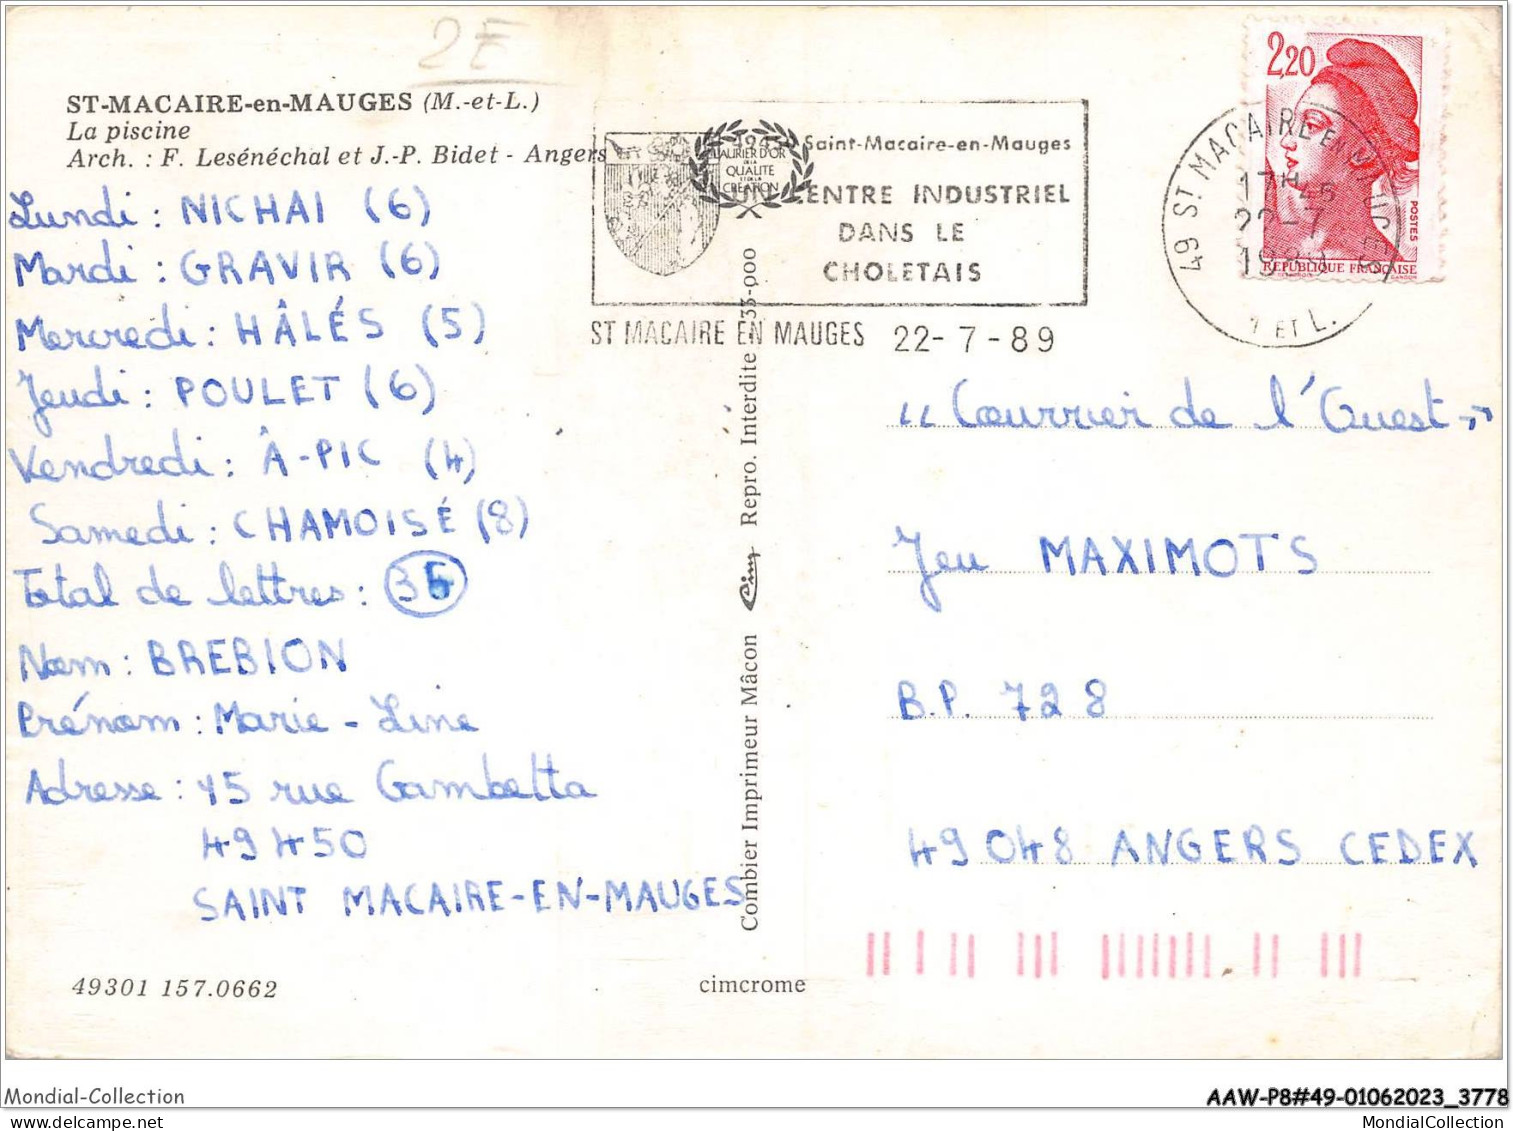 2F
ST-MACAIRE-en-MAUGES (M.-et-L.)
La piscine
Arch. : F. Lesénéchal et J.-P. Bidet - Angers
Lundi : NICHAI (6)
Mardi : GRAVIR (6)
Mercredi : HÂLÉS (5)
Jeudi : POULET (6)
Vendredi : Â-PIC (4)
Samedi : CHAMOISÉ (8)
Total de lettres : 35
Nom : BREBION
Prénom : Marie-Line
Adresse : 15 rue Gambetta
49450
SAINT MACAIRE-EN-MAUGES
49301 157.0662
LAURIER D'OR
DE LA
QUALITE
ET DE LA
CREATION
49450 Saint-Macaire-en-Mauges
UN CENTRE INDUSTRIEL
DANS LE
CHOLETAIS
ST MACAIRE EN MAUGES 22-7-89
Combier Imprimeur Mâcon Cim Repro. Interdite 33-000
cimcrome
2,20
POSTES
REPUBLIQUE FRANÇAISE
49 ST MACAIRE EN MAUGES
17H45
22-7
1989
M ET L.
"Courrier de l'Ouest"
Jeu MAXIMOTS
B.P. 728
49048 ANGERS CEDEX
Mondial-Collection
AAW-P8#49-01062023_3778
MondialCollection